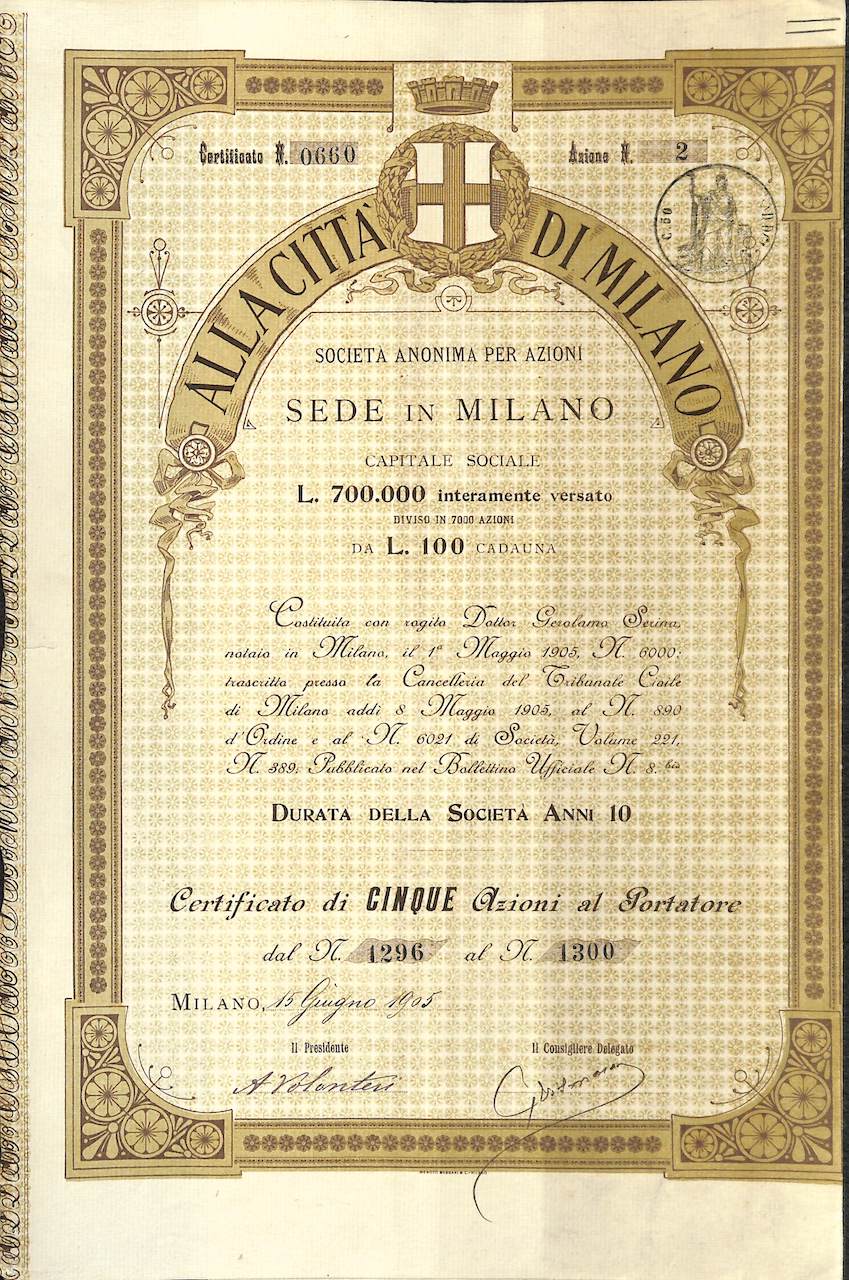 Certificato N. 0660
Azione N. 2
C. 50
ALLA CITTÀ DI MILANO
SOCIETÀ ANONIMA PER AZIONI
SEDE IN MILANO
CAPITALE SOCIALE
L. 700.000 interamente versato
DIVISO IN 7000 AZIONI
DA L. 100 CADAUNA
Costituita con rogito Dottor Gerolamo Serina,
notaio in Milano, il 1º Maggio 1905, N. 6000;
trascritto presso la Cancelleria del Tribunale Civile
di Milano addì 8 Maggio 1905, al N. 890
d'Ordine e al N. 6021 di Società, Volume 221,
N. 389; Pubblicato nel Bollettino Ufficiale N. 8. bis
DURATA DELLA SOCIETÀ ANNI 10
Certificato di CINQUE Azioni al Portatore
dal N. 1296 al N. 1300
MILANO, 15 Giugno 1905
Il Presidente
Il Consigliere Delegato
A Volonteri